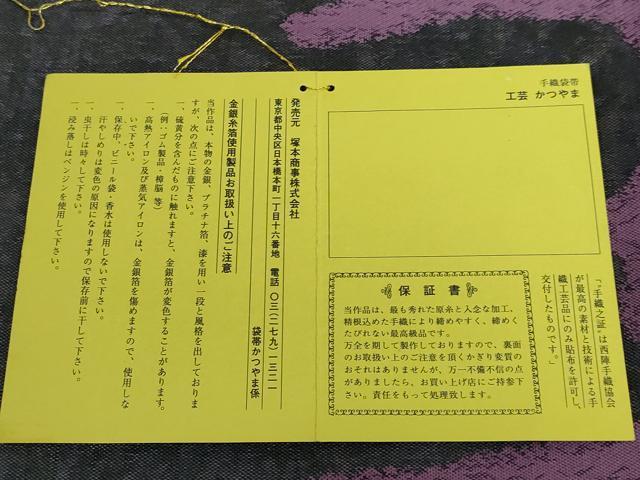 手織袋帯
工芸 かつやま
「"手織之証"は西陣手織協会
が最高の素材と技術による手
織工芸品にのみ貼布を許可し、
交付したものです。」
保証書
当作品は、最も秀れた原糸と入念な加工、
精根込めた手織により締めやすく、締めく
たびれない最高級品です。
万全を期して製作しておりますので、裏面
のお取扱い上のご注意を頂くかぎり変質の
おそれはありませんが、万一不備不信の点
がありましたら、お買い上げ店にご持参下
さい。責任をもって処理致します。
発売元 塚本商事株式会社
東京都中央区日本橋本町一丁目十六番地 電話 〇三(二七九)一三二一
袋帯かつやま係
金銀糸箔使用製品お取扱い上のご注意
当作品は、本物の金銀、プラチナ箔、漆を用い一段と風格を出しておりま
すが、次の点にご注意下さい。
一、硫黄分を含んだものに触れますと、金銀箔が変色することがあります。
(例:ゴム製品・樟脳 等)
一、高熱アイロン及び蒸気アイロンは、金銀箔を傷めますので、使用しな
いで下さい。
一、保存中、ビニール袋・香水は使用しないで下さい。
汗やしめりは変色の原因になりますので保存前に干して下さい。
一、虫干しは時々して下さい。
一、浸み落しはベンジンを使用して下さい。